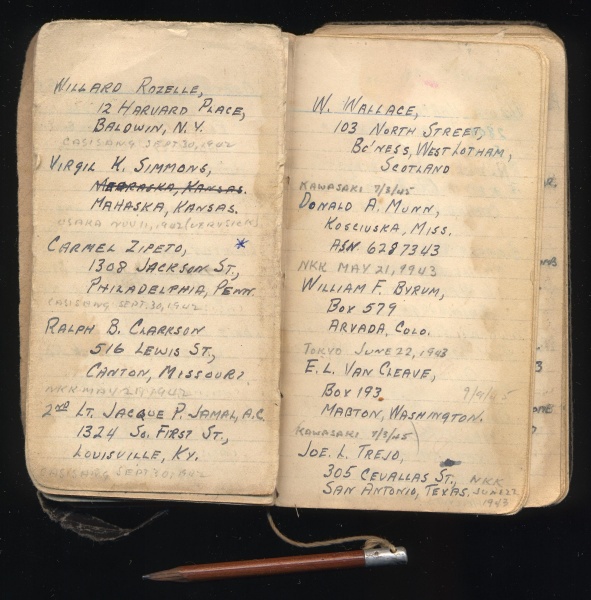 WILLARD ROZELLE,
12 HARVARD PLACE,
BALDWIN, N.Y.
CASISANG SEPT 30, 1942
VIRGIL K. SIMMONS,
NEBRASKA, KANSAS.
MAHASKA, KANSAS.
OSAKA NOV 11, 1942 (VERY SICK)
CARMEL ZIPETO, *
1308 JACKSON ST.,
PHILADELPHIA, PENN.
CASISANG SEPT. 30, 1942
RALPH B. CLARKSON
516 LEWIS ST.,
CANTON, MISSOURI
NKK MAY 21, 1942
2ND LT. JACQUE P. JAMAL, A.C.
1324 SO. FIRST ST.,
LOUISVILLE, KY.
CASISANG SEPT 30, 1942
W. WALLACE,
103 NORTH STREET,
BO'NESS, WEST LOTHAM,
SCOTLAND
KAWASAKI 7/3/45
DONALD A. MUNN,
KOSCIUSKA, MISS.
ASN. 6287343
NKK MAY 21, 1943
WILLIAM F. BYRUM,
BOX 579
ARVADA, COLO.
TOKYO JUNE 22, 1943
E. L. VAN CLEAVE,
BOX 193 9/9/45
MABTON, WASHINGTON.
KAWASAKI 7/3/45
JOE. L. TREJO,
305 CEVALLAS ST., NKK
SAN ANTONIO, TEXAS, JUNE 22
1943